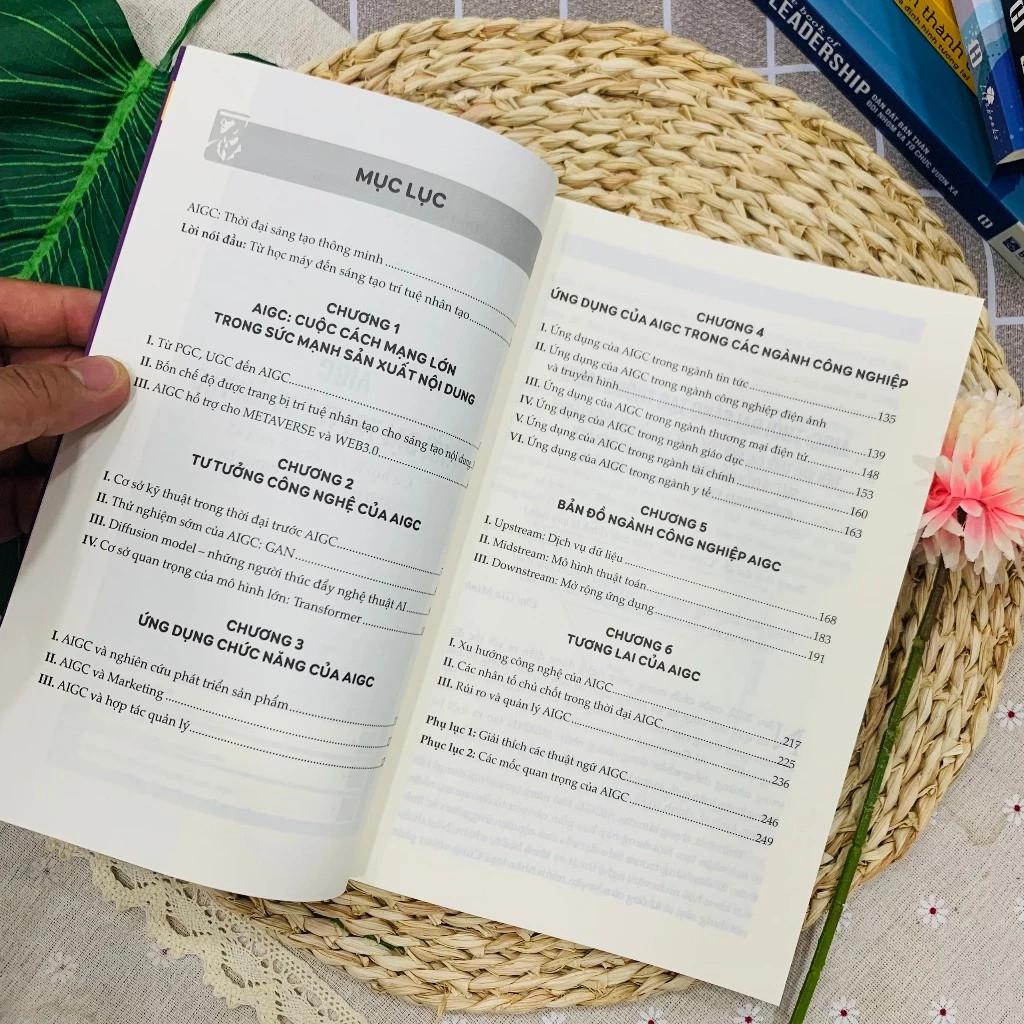 MỤC LỤC
AIGC: Thời đại sáng tạo thông minh
Lời nói đầu: Từ học máy đến sáng tạo trí tuệ nhân tạo
CHƯƠNG 1
AIGC: CUỘC CÁCH MẠNG LỚN
TRONG SỨC MẠNH SẢN XUẤT NỘI DUNG
I. Từ PGC, UGC đến AIGC
II. Bốn chế độ được trang bị trí tuệ nhân tạo cho sáng tạo nội dung
III. AIGC hỗ trợ cho METAVERSE và WEB3.0
CHƯƠNG 2
TƯ TƯỞNG CÔNG NGHỆ CỦA AIGC
I. Cơ sở kỹ thuật trong thời đại trước AIGC
II. Thử nghiệm sớm của AIGC: GAN
III. Diffusion model – những người thúc đẩy nghệ thuật AI
IV. Cơ sở quan trọng của mô hình lớn: Transformer
CHƯƠNG 3
ỨNG DỤNG CHỨC NĂNG CỦA AIGC
I. AIGC và nghiên cứu phát triển sản phẩm
II. AIGC và Marketing
III. AIGC và hợp tác quản lý
CHƯƠNG 4
ỨNG DỤNG CỦA AIGC TRONG CÁC NGÀNH CÔNG NGHIỆP
I. Ứng dụng của AIGC trong ngành tin tức 135
II. Ứng dụng của AIGC trong ngành công nghiệp điện ảnh
và truyền hình 139
III. Ứng dụng của AIGC trong ngành thương mại điện tử 148
IV. Ứng dụng của AIGC trong ngành giáo dục 153
V. Ứng dụng của AIGC trong ngành tài chính 160
VI. Ứng dụng của AIGC trong ngành y tế 163
CHƯƠNG 5
BẢN ĐỒ NGÀNH CÔNG NGHIỆP AIGC
I. Upstream: Dịch vụ dữ liệu 168
II. Midstream: Mô hình thuật toán 183
III. Downstream: Mở rộng ứng dụng 191
CHƯƠNG 6
TƯƠNG LAI CỦA AIGC
I. Xu hướng công nghệ của AIGC 217
II. Các nhân tố chủ chốt trong thời đại AIGC 225
III. Rủi ro và quản lý AIGC 236
Phụ lục 1: Giải thích các thuật ngữ AIGC 246
Phục lục 2: Các mốc quan trọng của AIGC 249
book of
LEADERSHIP
DẪN DẮT BẢN THÂN
ĐỘI NHÓM VÀ TỔ CHỨC VƯƠN XA
thành
định hình tương lai
books